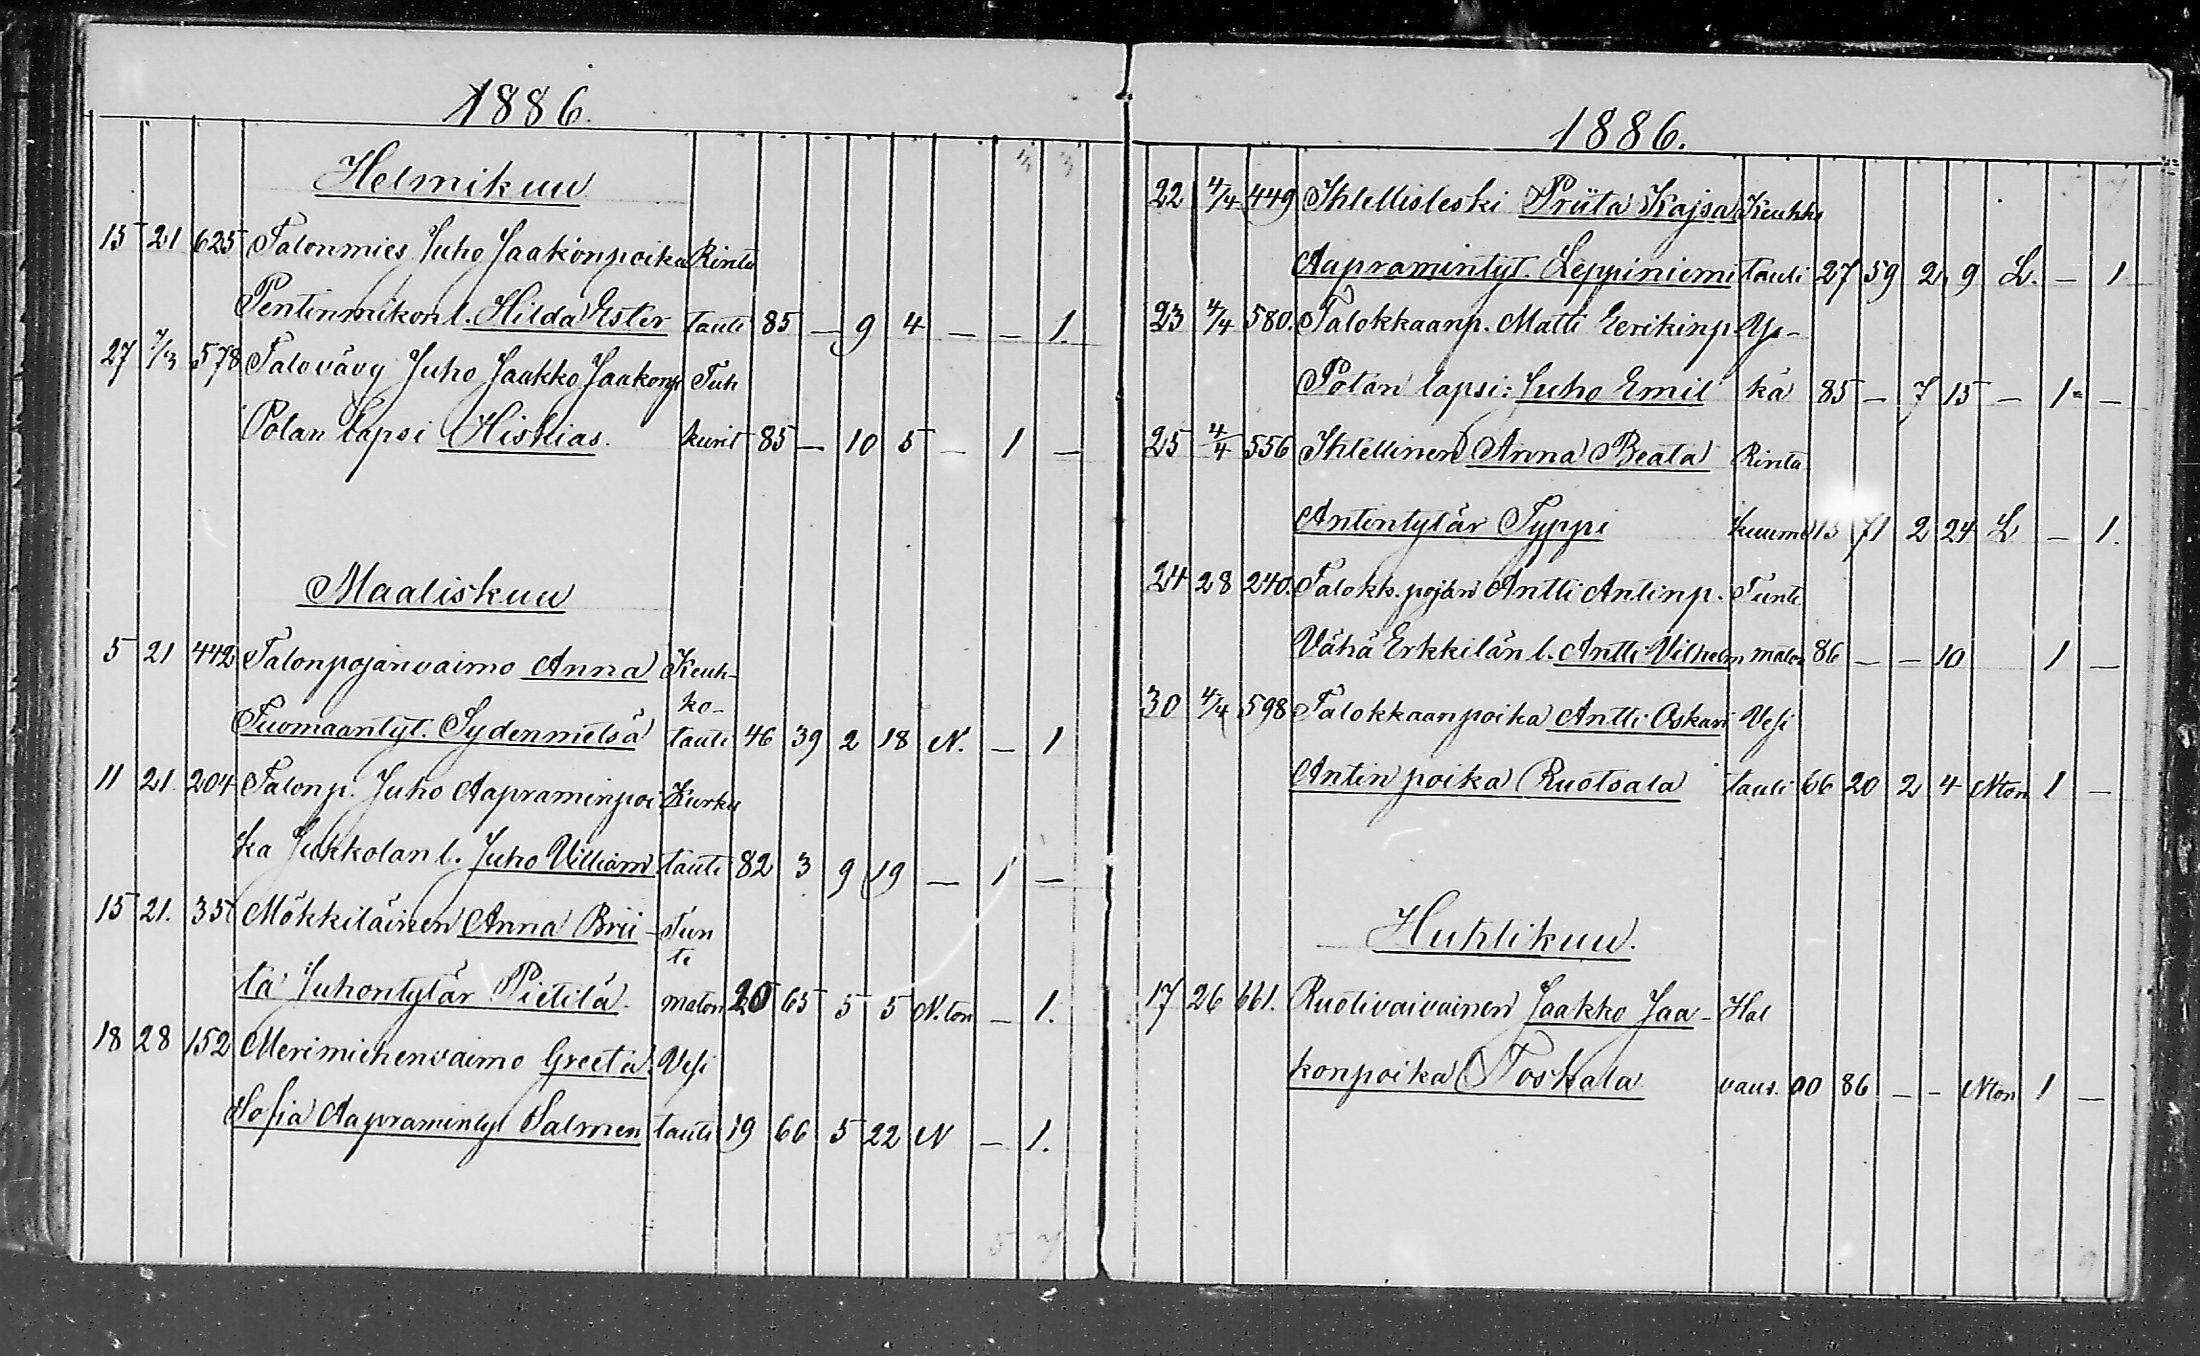 1886.
Helmikuu
15 21 625 Talonmies Juho Jaakonpoika Rinta
Pentinmikon l. Hilda Ester tauti 85 — 9 4 — — 1.
27 7/3 578 Talovävy Juho Jaakko Jaakonp Tuh
Polan lapsi Hiskias. kurit 85 — 10 5 — 1 —
Maaliskuu
5 21 442 Talonpojanvaimo Anna Keuh-
ko-
Tuomaantyt. Sydenmetsä tauti 46 39 2 18 N. — 1
11 21. 204 Talonp. Juho Aapraminpoi Kurku
ka Jukkolan l. Juho Villiam tauti 82 3 9 19 — 1 —
15 21. 351 Mökkiläinen Anna Brii- Tun
ti
ta Juhontytär Pietilä. maton 20 65 5 5 N.ton — 1.
18 28 152 Merimiehenvaimo Greeta Vesi
Sofia Aapramintyt Salmen tauti 19 66 5 22 N — 1.
5 7
1886.
22 4/4 449 Ihtellisleski Priita Kajsa Keuhko
Aapramintyt. Leppiniemi tauti 27 59 2 9 L. — 1
23 4/4 580. Talokkaanp. Matti Eerikinp. Ys-
Potan lapsi: Juho Emil kä 85 — 7 15 — 1 —
25 4/4 556 Ihtellinen Anna Beata Rinta
Antintytär Typpi kuume 13 71 2 24 L — 1.
24 28 240. Talokk.pojan Antti Antinp. Tunte
Vähä Erkkilän l. Antti Vilhelm maton 86 — — 10 1 —
30 4/4 598 Talokkaanpoika Antti Oskari Vesi
Antinpoika Ruotsala tauti 66 20 2 4 Nton 1 —
Huhtikuu.
17 26 661. Ruotivaivainen Jaakko Jaa- Hal
konpoika Toskala vaus. 00 86 — — Nton 1 —